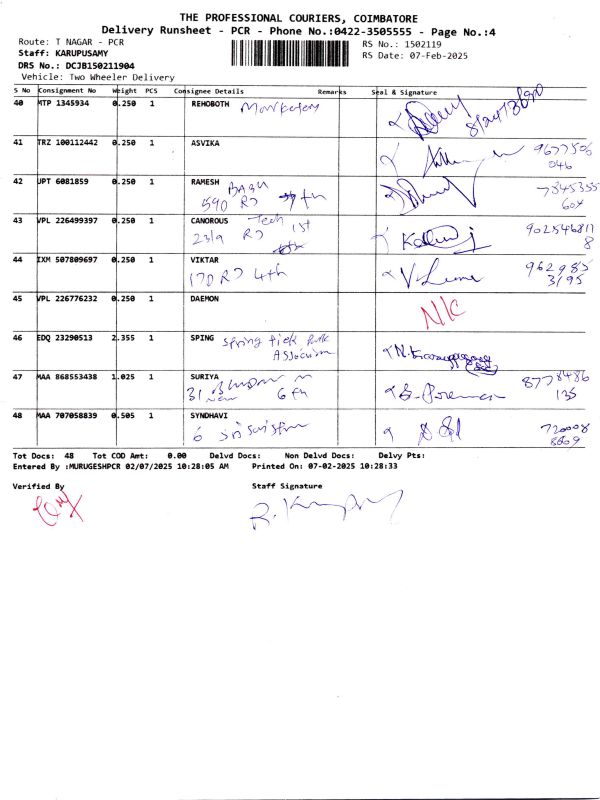 THE PROFESSIONAL COURIERS, COIMBATORE
Delivery Runsheet - PCR - Phone No.:0422-3505555 - Page No.:4
Route: T NAGAR - PCR
RS No.: 1502119
Staff: KARUPUSAMY
RS Date: 07-Feb-2025
DRS No.: DCJB150211904
Vehicle: Two Wheeler Delivery
S No Consignment No Weight PCS Consignee Details Remarks Seal & Signature
40 MTP 1345934 0.250 1 REHOBOTH
41 TRZ 100112442 0.250 1 ASVIKA 9677506
046
42 JPT 6081859 0.250 1 RAMESH 7345355
590 RD 604
43 VPL 226499397 0.250 1 CANOROUS Tech 1st
23/9 RD
44 IXM 507809697 0.250 1 VIKTAR 962985
170 RD 4th 3195
45 VPL 226776232 0.250 1 DAEMON N/C
46 EDQ 23290513 2.355 1 SPING
47 MAA 868553438 1.025 1 SURIYA 8778486
31 6th 135
48 MAA 707058839 0.505 1 SYNDHAVI 720008
6 8809
Tot Docs: 48 Tot COD Amt: 0.00 Delvd Docs: Non Delvd Docs: Delvy Pts:
Entered By :MURUGESHPCR 02/07/2025 10:28:05 AM Printed On: 07-02-2025 10:28:33
Verified By Staff Signature